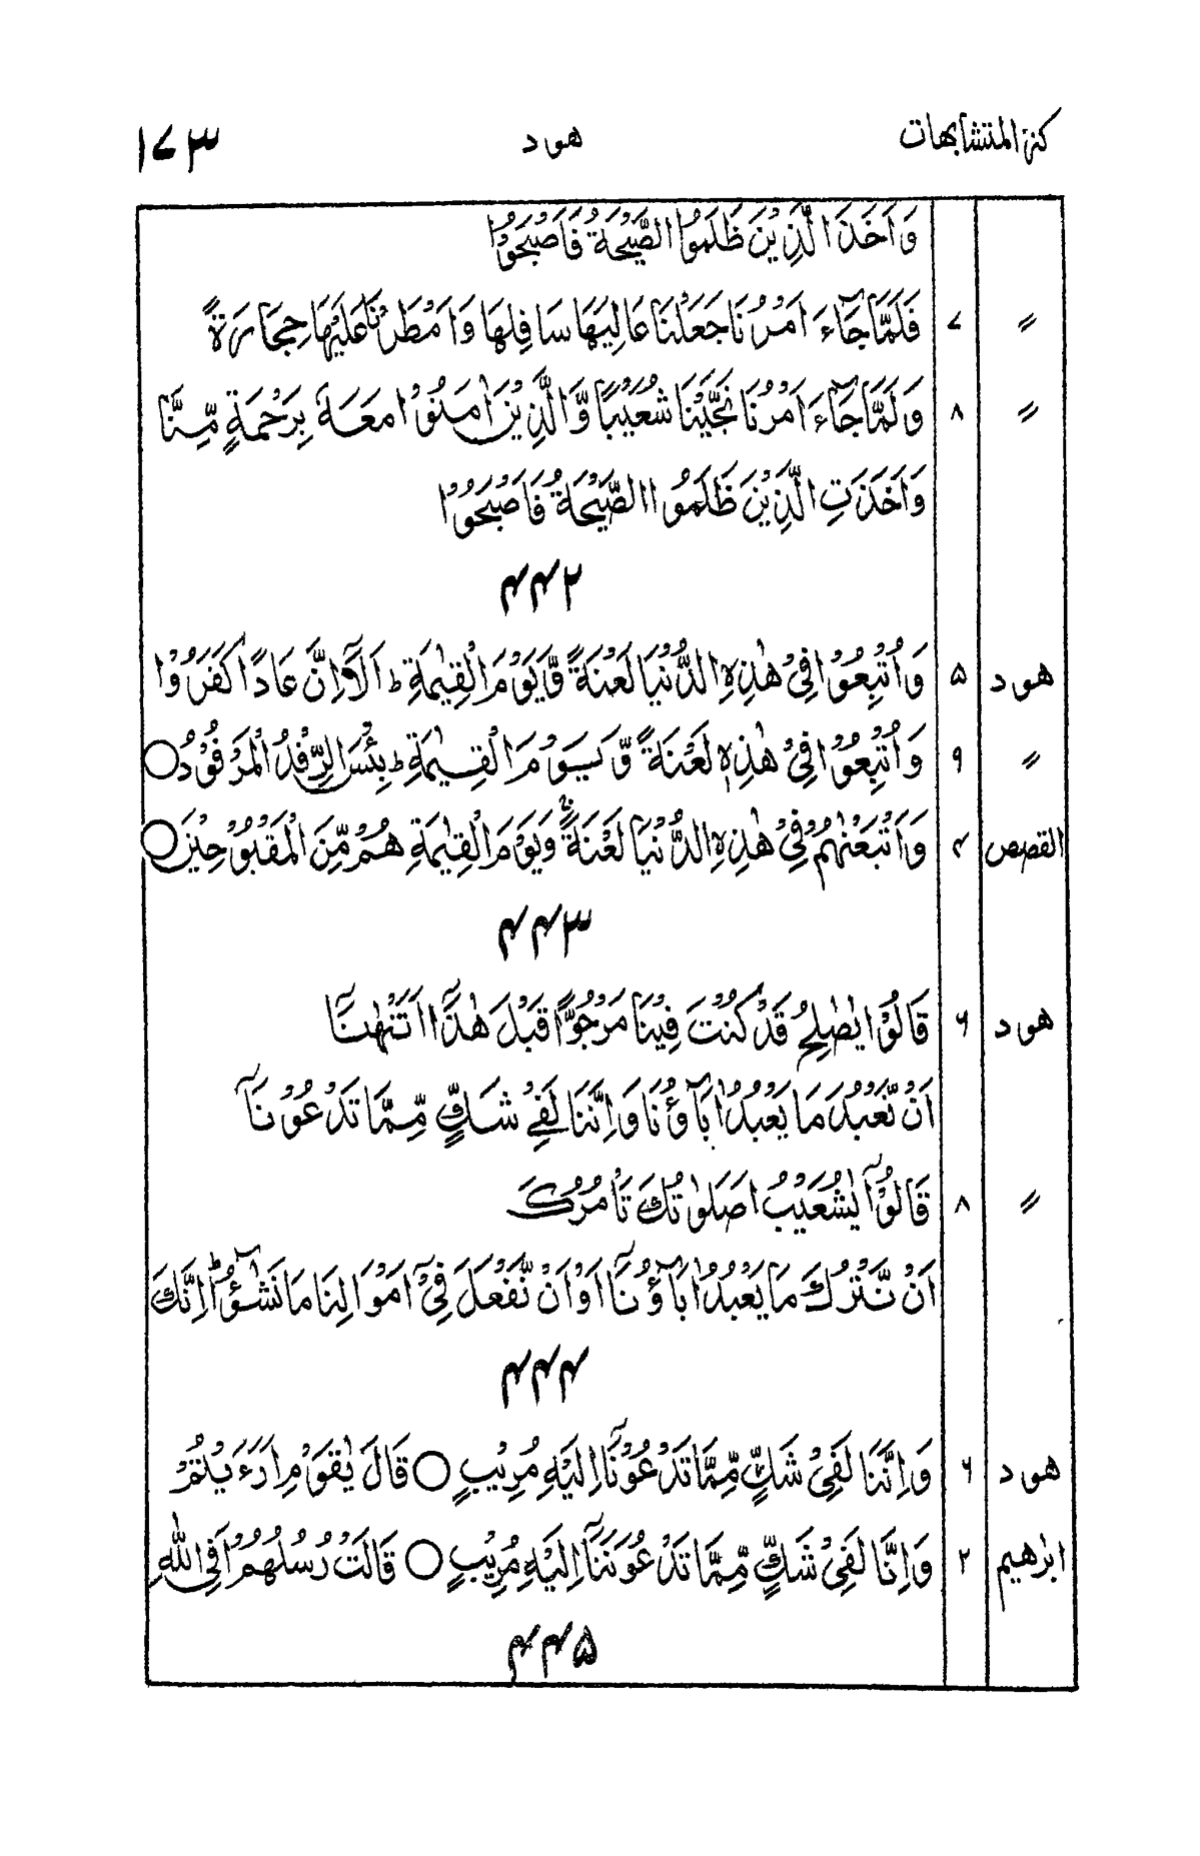 كنز المتشابهات هود ١٧٣
وَاَخَذَ الَّذِيْنَ ظَلَمُوا الصَّيْحَةُ فَاَصْبَحُوْا
〃 ٧ فَلَمَّا جَآءَ اَمْرُنَا جَعَلْنَا عَالِيَهَا سَافِلَهَا وَاَمْطَرْنَا عَلَيْهَا حِجَارَةً
〃 ٨ وَلَمَّا جَآءَ اَمْرُنَا نَجَّيْنَا شُعَيْبًا وَّالَّذِيْنَ اٰمَنُوْا مَعَهٗ بِرَحْمَةٍ مِّنَّا
وَاَخَذَتِ الَّذِيْنَ ظَلَمُوا الصَّيْحَةُ فَاَصْبَحُوْا
۴۴۲
هود ۵ وَاُتْبِعُوْا فِيْ هٰذِهِ الدُّنْيَا لَعْنَةً وَّيَوْمَ الْقِيٰمَةِ ط اَلَآ اِنَّ عَادًا كَفَرُوْا
〃 ٩ وَاُتْبِعُوْا فِيْ هٰذِهٖ لَعْنَةً وَّيَوْمَ الْقِيٰمَةِ ط بِئْسَ الرِّفْدُ الْمَرْفُوْدُ ○
القصص ۴ وَاَتْبَعْنٰهُمْ فِيْ هٰذِهِ الدُّنْيَا لَعْنَةً ج وَيَوْمَ الْقِيٰمَةِ هُمْ مِّنَ الْمَقْبُوْحِيْنَ ○
۴۴۳
هود ۶ قَالُوْا يٰصٰلِحُ قَدْ كُنْتَ فِيْنَا مَرْجُوًّا قَبْلَ هٰذَآ اَتَنْهٰىنَآ
اَنْ نَّعْبُدَ مَا يَعْبُدُ اٰبَآؤُنَا وَاِنَّنَا لَفِيْ شَكٍّ مِّمَّا تَدْعُوْنَآ
〃 ٨ قَالُوْا يٰشُعَيْبُ اَصَلٰوتُكَ تَاْمُرُكَ
اَنْ نَّتْرُكَ مَا يَعْبُدُ اٰبَآؤُنَآ اَوْ اَنْ نَّفْعَلَ فِيْٓ اَمْوَالِنَا مَا نَشٰٓؤُا ط اِنَّكَ
۴۴۴
هود ۶ وَاِنَّنَا لَفِيْ شَكٍّ مِّمَّا تَدْعُوْنَآ اِلَيْهِ مُرِيْبٍ ○ قَالَ يٰقَوْمِ اَرَءَيْتُمْ
ابرٰهيم ٢ وَاِنَّا لَفِيْ شَكٍّ مِّمَّا تَدْعُوْنَنَآ اِلَيْهِ مُرِيْبٍ ○ قَالَتْ رُسُلُهُمْ اَفِي اللّٰهِ
۴۴۵